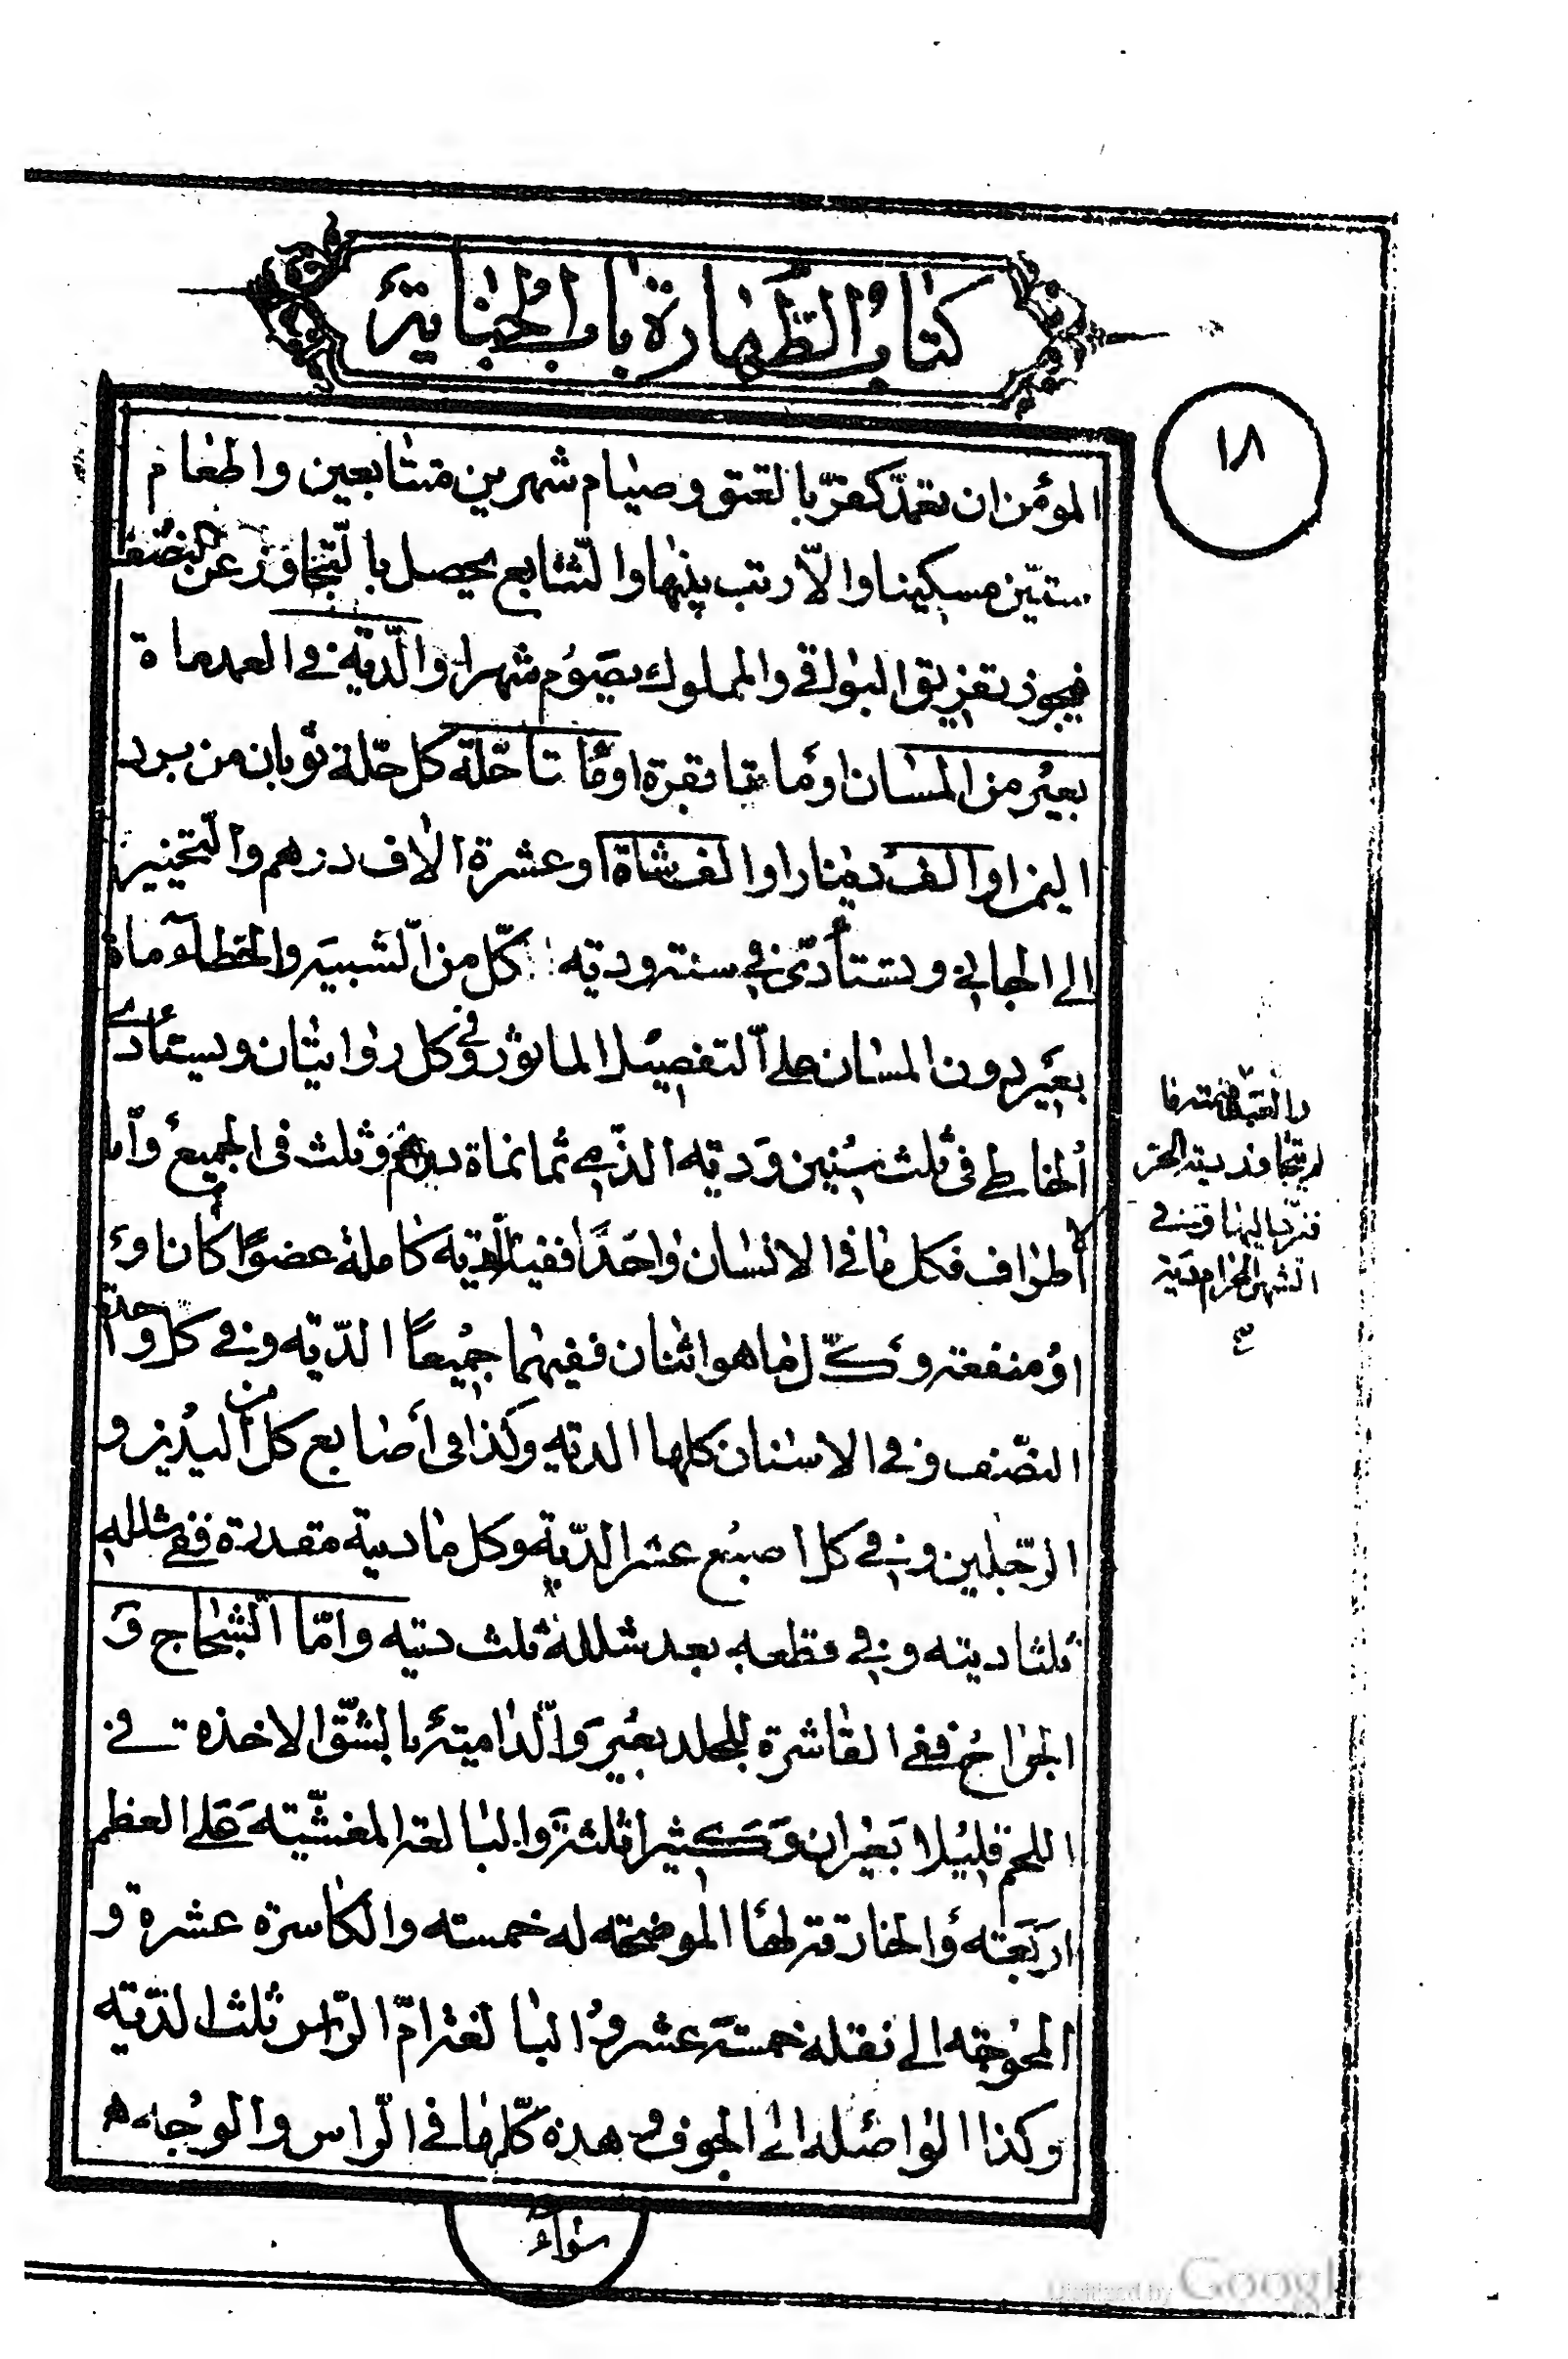 كتاب الطهارة باب الجناية
١٨
المؤمن ان تعمد كفر بالعتق وصيام شهرين متتابعين واطعام
ستين مسكينا والا رتب بينها والتتابع يحصل بالتجاوز عن النصف
فيجوز تفريق البواقي والمملوك يصوم شهرا والدية في العمد ماة
بعير من المسان او مائتا بقرة او مائتا حلة كل حلة ثوبان من برد
اليمن او الف دينار او الف شاة او عشرة الاف درهم والتخيير
الى الجاني وتستأدى في سنة ودية كل من الشبيه والخطاء ماة
بعير دون المسان على التفصيل الماثور وفي كل روايتان ويستأدى
الخاطي في ثلث سنين ودية الذمي ثمانماة درهم وثلث في الجميع واما
الاطراف فكل ما في الانسان واحدا ففيه الدية كاملة عضوا كان او
او منفعة وكل ما هو اثنان ففيهما جميعا الدية وفي كل واحدة
النصف وفي الاسنان كلها الدية وكذا في أصابع كل من اليدين و
الرجلين وفي كل اصبع عشر الدية وكل ما ديته مقدرة ففي شلله
ثلثا ديته وفي قطعه بعد شلله ثلث ديته واما الشجاج و
الجراح ففي القاشرة للجلد بعير والدامية بالشق الاخذة في
اللحم قليلا بعيران وكثيرا ثلثة والبالغة المغشية على العظم
اربعة والخارقة لها الموضحة له خمسة والكاسرة عشرة و
المحوجة الى نقله خمسة عشر والبالغة ام الراس ثلث الدية
وكذا الواصلة الى الجوف وهذه كلها في الراس والوجه
سواء
لم يتجاوز دية الحر
فترد اليها وفي
الشهر الحرام دية